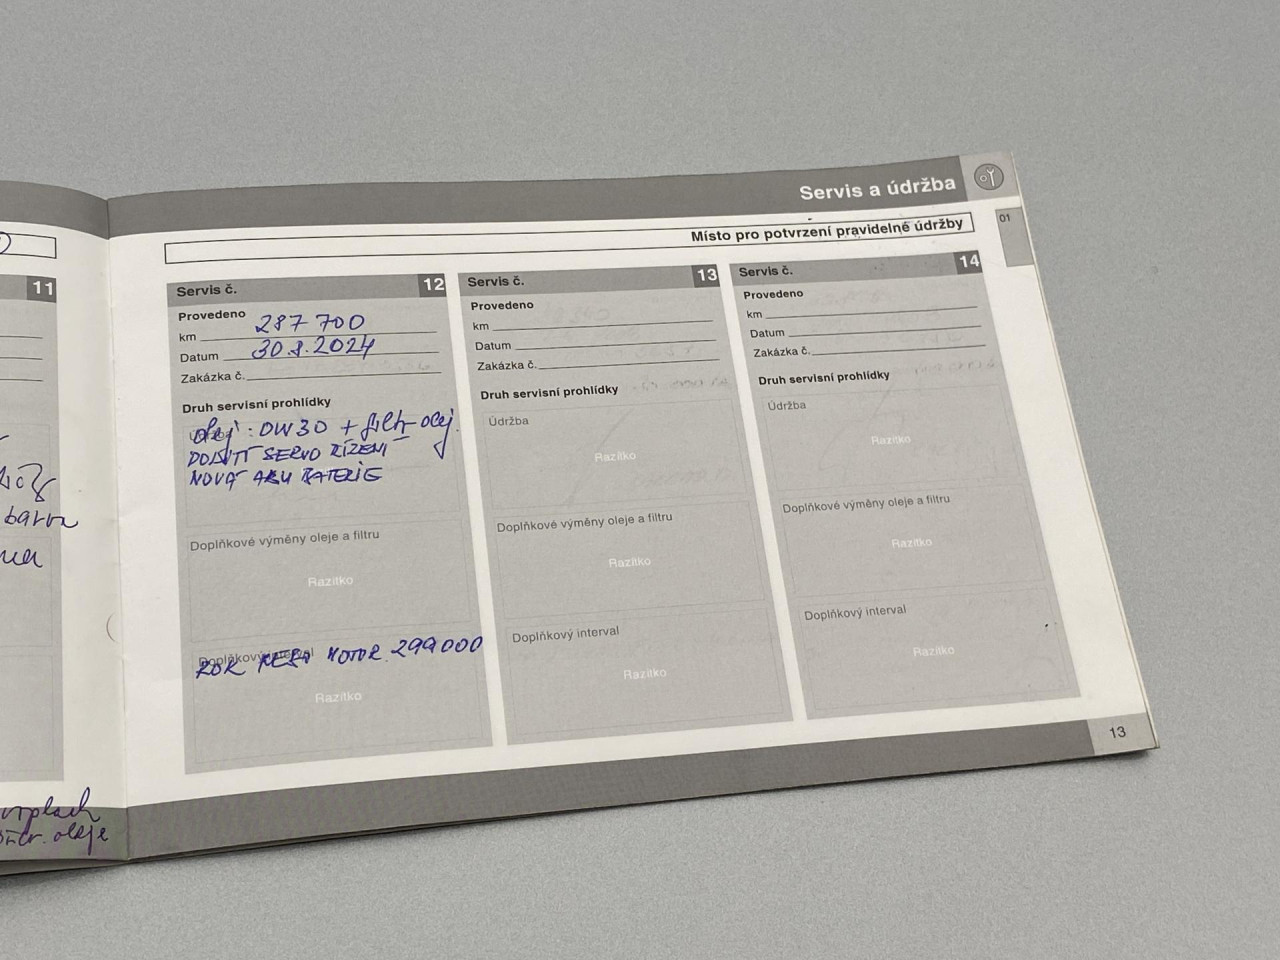 Servis a údržba
01
Místo pro potvrzení pravidelné údržby
11
barva
vyplach
oleje
Servis č. 12
Provedeno
km 287 700
Datum 30.8.2024
Zakázka č.
Druh servisní prohlídky
Údržba
olej: OW30 + filtr olej.
DOLITÍ SERVO ŘÍZENÍ
NOVÁ AKU BATERIE
Doplňkové výměny oleje a filtru
Razítko
Doplňkový interval
ROK NEBO MOTOR. 299000
Razítko
Servis č. 13
Provedeno
km
Datum
Zakázka č.
Druh servisní prohlídky
Údržba
Razítko
Doplňkové výměny oleje a filtru
Razítko
Doplňkový interval
Razítko
Servis č. 14
Provedeno
km
Datum
Zakázka č.
Druh servisní prohlídky
Údržba
Razítko
Doplňkové výměny oleje a filtru
Razítko
Doplňkový interval
Razítko
13